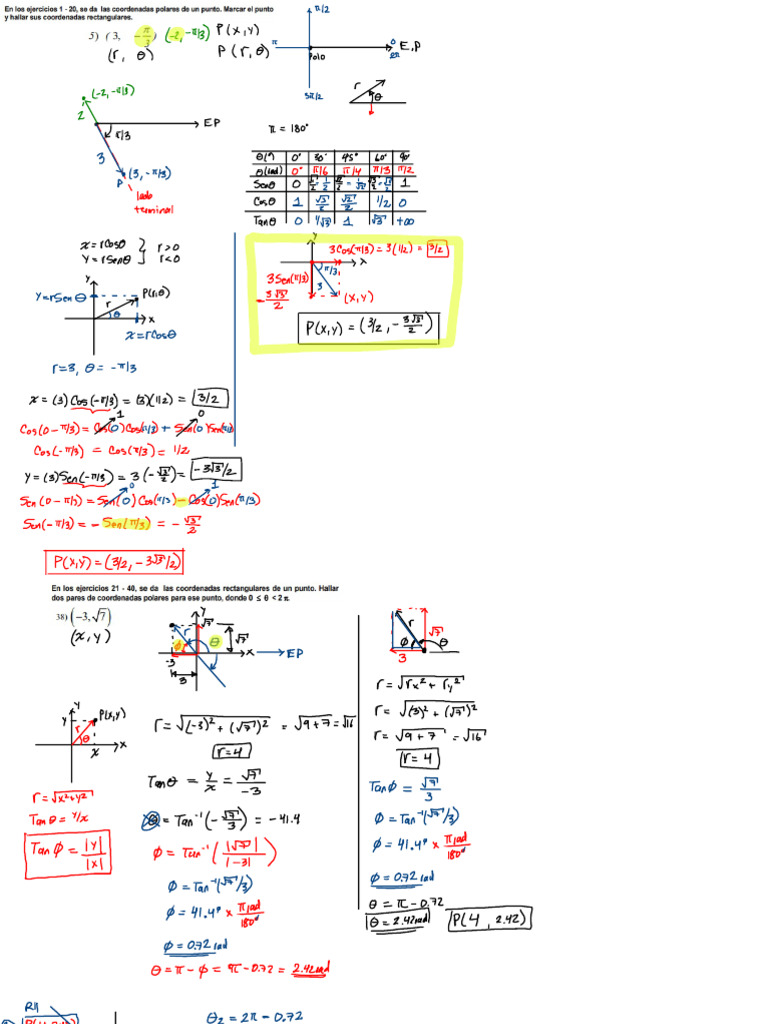 En los ejercicios 1 - 20, se da las coordenadas polares de un punto. Marcar el punto
y hallar sus coordenadas rectangulares.
5) (3, -π/3) (-2, -π/3) P(x, y)
(r, θ) P(r, θ)
π/2
π
Polo
0
2π
E.P
3π/2
r
θ
(-2, -π/3)
2
EP
π/3
3
(3, -π/3)
P
lado
terminal
π = 180°
θ(°) 0° 30° 45° 60° 90°
θ(rad) 0° π/6 π/4 π/3 π/2
Senθ 0 1/2 √2/2 = 1/√2 √3/2 1
Cosθ 1 √3/2 √2/2 1/2 0
Tanθ 0 1/√3 1 √3 +∞
x = rCosθ } r>0
y = rSenθ } r<0
y
y=rSenθ
P(r,θ)
r
θ
x
x=rCosθ
r=3, θ = -π/3
y
3Cos(π/3) = 3(1/2) = 3/2
x
π/3
3Sen(π/3)
3
-3√3/2
(x,y)
P(x,y) = (3/2, -3√3/2)
x = (3) Cos(-π/3) = (3)(1/2) = 3/2
1 0
Cos(0-π/3) = Cos(0) Cos(π/3) + Sen(0) Sen(π/3)
Cos(-π/3) = Cos(π/3) = 1/2
y = (3) Sen(-π/3) = 3(-√3/2) = -3√3/2
0 1
Sen(0-π/3) = Sen(0) Cos(π/3) - Cos(0) Sen(π/3)
Sen(-π/3) = -Sen(π/3) = -√3/2
P(x,y) = (3/2, -3√3/2)
En los ejercicios 21 - 40, se da las coordenadas rectangulares de un punto. Hallar
dos pares de coordenadas polares para ese punto, donde 0 ≤ θ < 2π.
38) (-3, √7)
(x, y)
y
√7
r
θ
√7
φ
-3
x
EP
3
y
y
P(x,y)
r
θ
x
x
r = √x²+y²
Tanθ = y/x
Tanφ = |y|/|x|
r = √(-3)² + (√7)² = √9+7 = √16
r = 4
Tanθ = y/x = √7/-3
θ = Tan⁻¹(-√7/3) = -41.4
φ = Tan⁻¹(|√7|/|-3|)
φ = Tan⁻¹(√7/3)
φ = 41.4° x π rad/180°
φ = 0.72 rad
θ = π - φ = π - 0.72 = 2.42 rad
r
√7
φ
θ
3
r = √rx² + ry²
r = √(3)² + (√7)²
r = √9+7 = √16
r = 4
Tanφ = √7/3
φ = Tan⁻¹(√7/3)
φ = 41.4° x π rad/180°
φ = 0.72 rad
θ = π - 0.72
θ = 2.42 rad P(4, 2.42)
θ₂ = 2π - 0.72